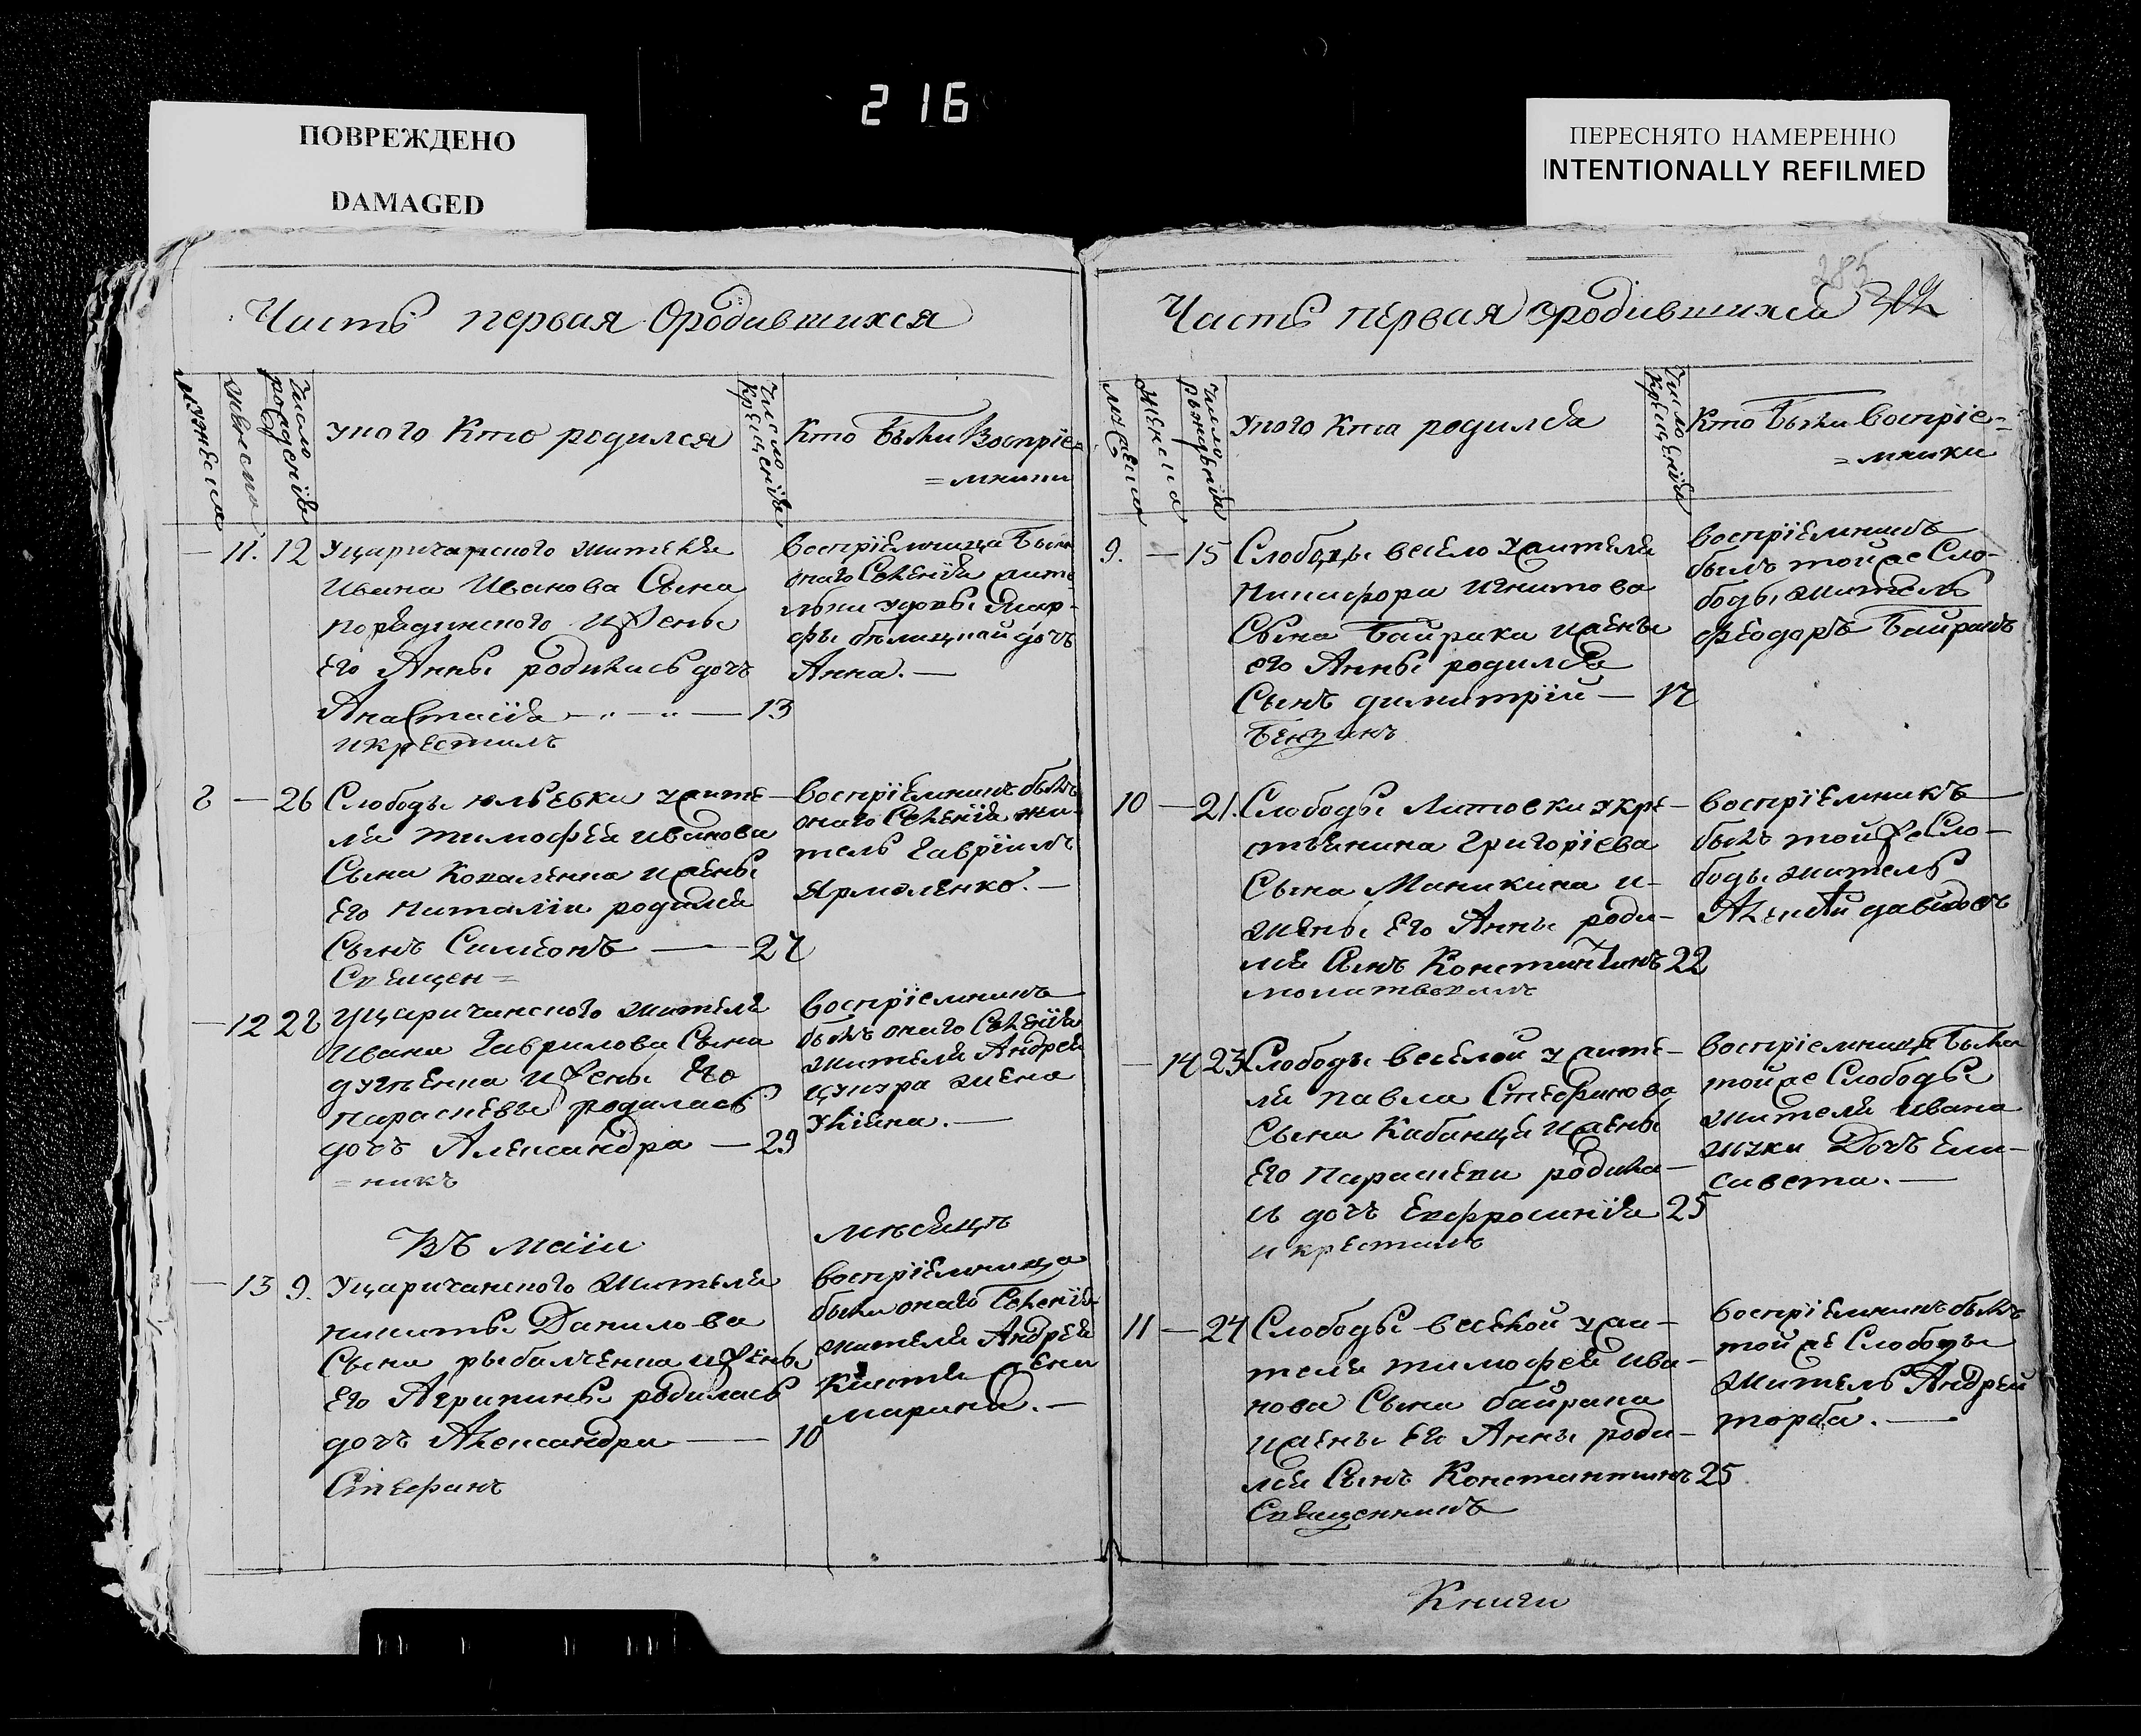 216
ПОВРЕЖДЕНО
DAMAGED
ПЕРЕСНЯТО НАМЕРЕННО
INTENTIONALLY REFILMED
Часть первая Ородившихся
мужеска
женска
Число рождения
Укого Кто родился
Число Крещенія
Кто были Восприе=
=мники
— 11. 12 Уцаричанского жителя
Ивана Иванова Сына
и жены
Его Анны родилась дочь
Анастасія — „ — „ — 13
икрестилъ
воспріемница была
онаго Селенія жите
Анна. —
8 — 26 Слободы юльевки ужите—
ля тимофея иванова
Сына Коваленка ижены
Его Наталіи родился
Сынъ Симеонъ — 27
Священ=
воспріемникъ былъ
онаго Селенія жи-
тель Гавріилъ
Ярмоленко. —
— 12 28 Уцаричанского жителя
Ивана Гаврилова Сына
ижены Его
параскевы родилась
дочь Александра — 29
=никъ
воспріемникъ
былъ онаго Селенія
жителя Андрея
жена
Уліяна. —
Въ маіи
мѣсяцѣ
— 13 9. Уцаричанского жителя
никиты Данилова
Сына рыбалченка ижены
Его Агрипины родилась
дочь Александра — 10
Стефанъ
воспріемница
была онаго Селенія
жителя Андрея
жена
марина. —
285
Часть первая Ородившихся
мужеска
женска
Число рождения
Укого Кто родился
Число Крещенія
Кто были Воспріе=
=мники
9. — 15 Слободы весело ужителя
Никифора игнатова
Сына Байрака ижены
его Анны родился
Сынъ димитрій — 17
воспріемникъ
былъ тойже Сло-
боды житель
феодоръ Байракъ
10 — 21. Слободы Литовки укре—
стьянина Григоріева
Сына Маникина и-
жены Его Анны роди-
лся Сынъ Константинъ 22
молитвовалъ
воспріемникъ
былъ тойже Сло-
боды житель
Алексѣй давидовъ
— 14 23 Слободы веселой ужите-
ля павла Стефанова
Сына Кабанця ижены
Его Параскевы родила-
сь дочь Евфросинія 25
икрестилъ
воспріемница была
тойже Слободы
жителя ивана
Дочь Ели-
савета. —
11 — 24 Слободы веселой ужи-
теля тимофея ива-
нова Сына байрака
ижены Его Анны роди-
лся Сынъ Константинъ 25
Священникъ
воспріемникъ былъ
тойже Слободы
житель Андрей
торба. —
Книги